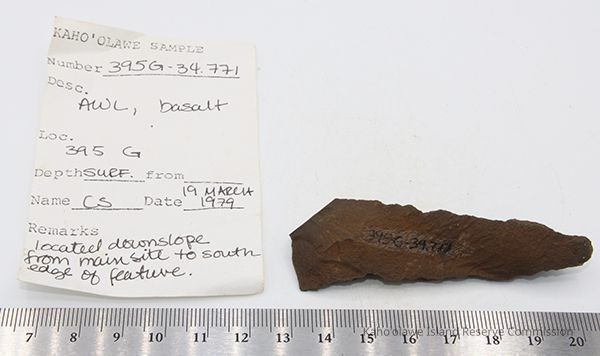 KAHO'OLAWE SAMPLE
Number 395G-34.771
Desc.
AWL, basalt
Loc.
395 G
Depth SURF. from
Name CS Date 19 MARCH 1979
Remarks
located downslope
from main site to south
edge of feature.
395G-34.771
Kaho'olawe Island Reserve Commission
7 8 9 10 11 12 13 14 15 16 17 18 19 20